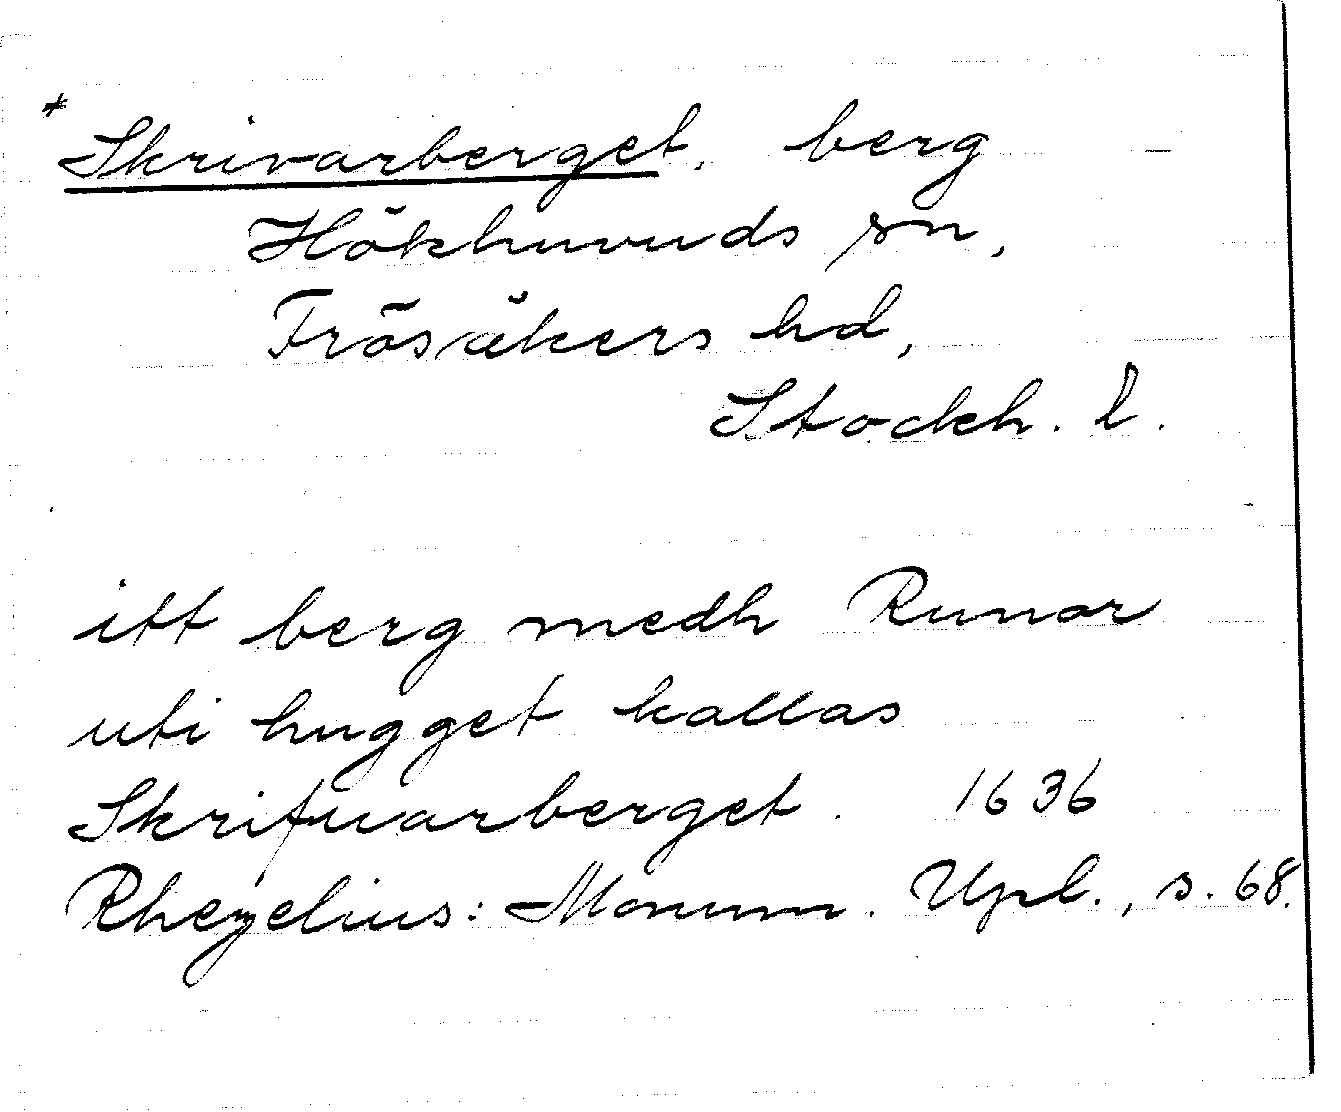 * Skrivarberget, berg
Hökhuvuds sn,
Frösåkers hd,
Stockh. l.
itt berg medh Runor
uti hugget kallas
Skrifuarberget. 1636
Rhezelius: Monum. Upl., s. 68.